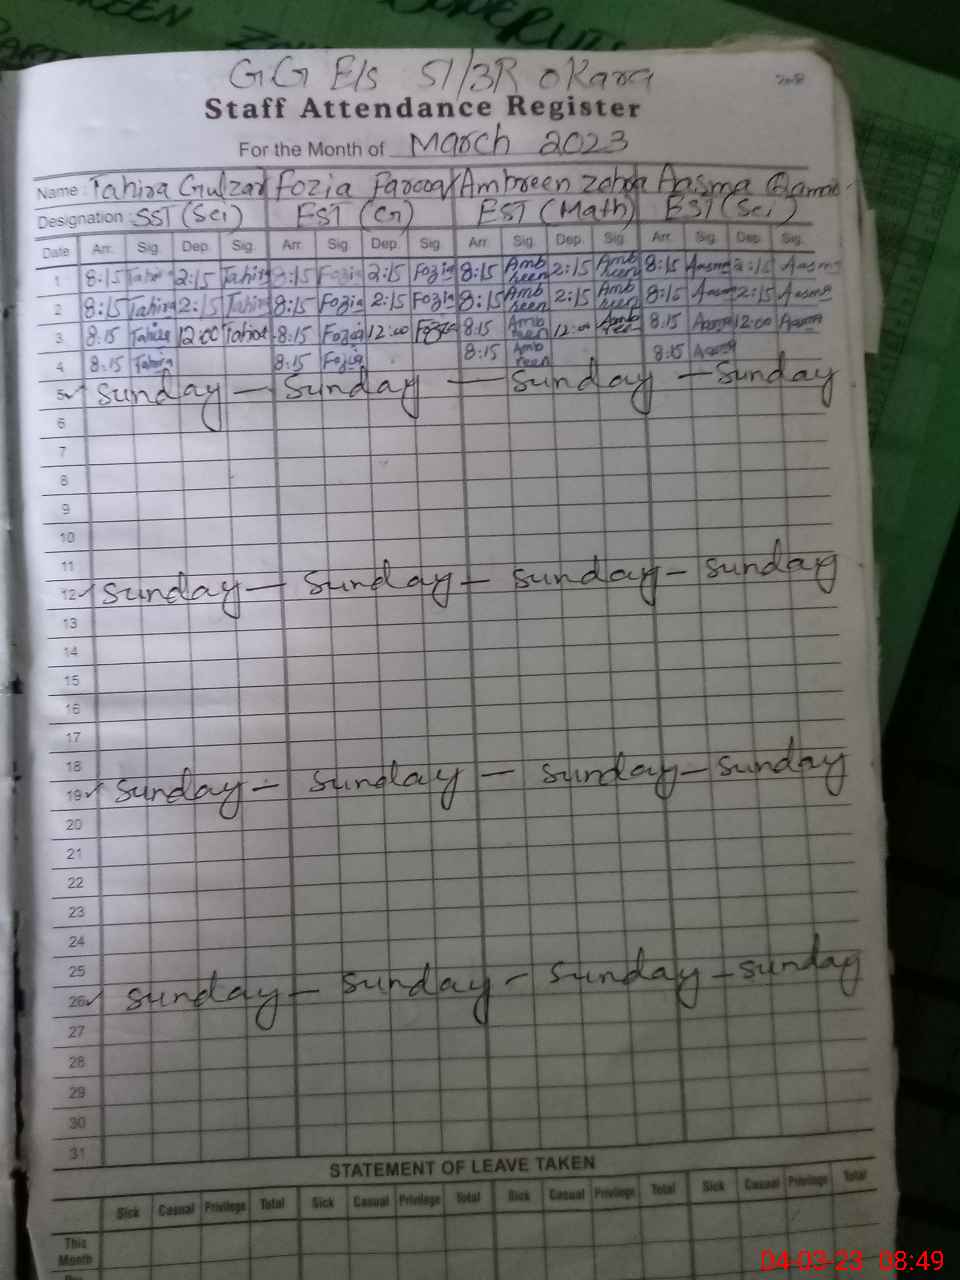 GG E/s 51/3R okara
Staff Attendance Register
For the Month of March 2023
Name : Tahira Gulzar Fozia Farooq Ambreen zohra Aasma
Designation : SST (Sci) EST (G) EST (Math) EST (Sci)
Date Arr. Sig. Dep. Sig. Arr. Sig. Dep. Sig. Arr. Sig. Dep. Sig. Arr. Sig. Dep. Sig.
1 8:15 Tahira 2:15 Tahira 8:15 Fozia 2:15 Fozia 8:15 Ambreen 2:15 Ambreen 8:15 Aasma 2:15 Aasma
2 8:15 Tahira 2:15 Tahira 8:15 Fozia 2:15 Fozia 8:15 Ambreen 2:15 Ambreen 8:15 Aasma 2:15 Aasma
3 8:15 Tahira 12:00 Tahira 8:15 Fozia 12:00 Fozia 8:15 Ambreen 12:00 Ambreen 8:15 Aasma 12:00 Aasma
4 8:15 Tahira 8:15 Fozia 8:15 Ambreen 8:15 Aasma
5 sunday — sunday — sunday — sunday
6
7
8
9
10
11
12 sunday — sunday — sunday — sunday
13
14
15
16
17
18
19 sunday — sunday — sunday — sunday
20
21
22
23
24
25
26 sunday — sunday — sunday — sunday
27
28
29
30
31
STATEMENT OF LEAVE TAKEN
Sick Casual Privilege Total Sick Casual Privilege Total Sick Casual Privilege Total Sick Casual Privilege Total
This Month
04-03-23 08:49